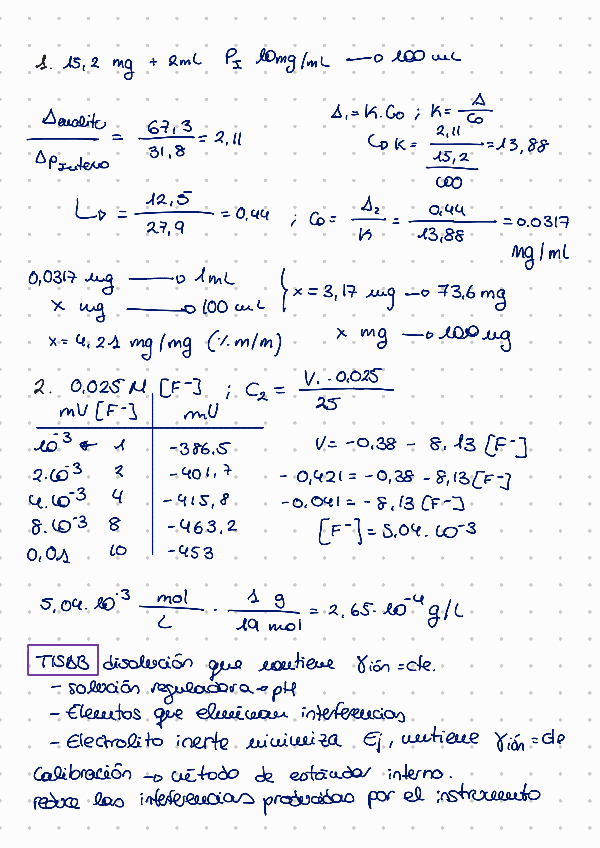 1. 15,2 mg + 2mL PI 10mg/mL → 100 mL
Δanalito / ΔPInterno = 67,3 / 31,8 = 2,11
Δ1 = K.Co ; K = Δ / Co
↳ K = 2,11 / (15,2 / 100) = 13,88
↳ = 12,5 / 27,9 = 0,44 ; Co = Δ2 / K = 0,44 / 13,88 = 0.0317 mg/mL
0,0317 mg → 1mL
x mg → 100 mL } x = 3,17 mg → 73,6 mg
x = 4,21 mg/mg (% m/m) x mg → 100 mg
2. 0,025 M [F-] ; C2 = V. 0.025 / 25
mV [F-] mV
10^-3 ← 1 -386,5
2.10^-3 2 -401,7
4.10^-3 4 -415,8
8.10^-3 8 -463,2
0,01 10 -453
V = -0,38 - 8,13 [F-]
-0,421 = -0,38 - 8,13 [F-]
-0.041 = -8,13 [F-]
[F-] = 5,04.10^-3
5,04.10^-3 mol / L . 1 g / 19 mol = 2,65.10^-4 g/L
TISAB disolución que mantiene γión = cte.
- solución reguladora → pH
- Elementos que eliminan interferencias
- Electrolito inerte minimiza Ej, mantiene γión = cte
Calibración → método de estándar interno.
reduce las interferencias producidas por el instrumento